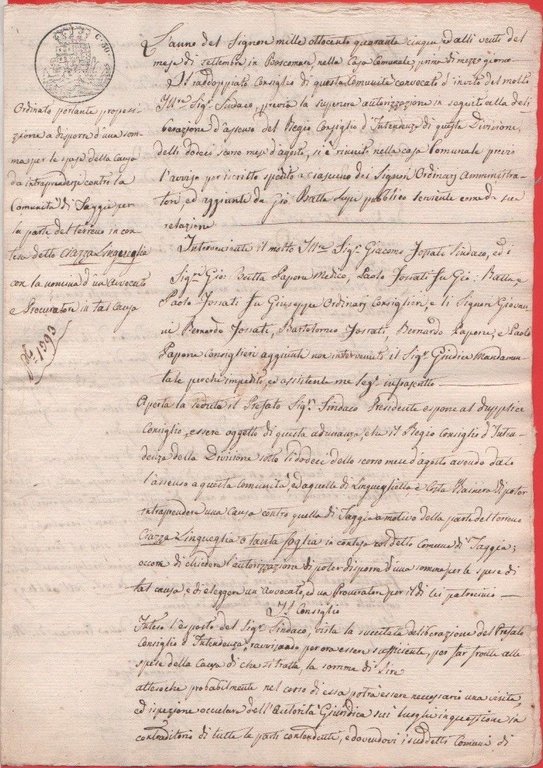 C. 30
L'anno del Signore mille ottocento quaranta cinque ed alli venti del
mese di settembre in Boscomare, nella Casa Comunale, prima di mezzo giorno
Il raddoppiato Consiglio di questa Comunità convocato d'invito del molto
Ill.re Sig. Sindaco, previa la superiore autorizzazione in seguito alla deli
berazione d'assenso del Regio Consiglio d'Intendenza di questa Divisione,
delli dodeci scorso mese d'agosto, si è riunito nella casa Comunale previo
l'avviso per iscritto spedito a ciascuno dei Signori Ordinarj Amministra
tori ed aggiunti da Gio Batta pubblico serviente come da sua
relazione
Ordinato portante proposi
zione a disporre d'una som
ma per le spese della Causa
da intraprendersi contro la
Comunità di Taggia per
la parte del terreno in con
tesa detto Ciazza Lingueglia
con la nomina d'un Avvocato
e Procuratore in tal Causa
N. 1393
Intervenuti il molto Ill.re Sig. Giacomo Sindaco, ed i
Sig.ri Gio: Batta Papone Medico, Paolo fu Gio: Batta e
Paolo fu Giuseppe Ordinarj Consiglieri, e li Signori Giovan
ni Bernardo Bartolomeo Bernardo Papone, e Paolo
Papone Consiglieri aggiunti non intervenuto il Sig. Giudice Mandamen
tale perchè impedito, ed assistente me Seg.ro infrascritto
Aperta la seduta il Prefato Sig. Sindaco Presidente espone al duplice
Consiglio, essere oggetto di questa adunanza, che il Regio Consiglio d'Inten
denza della Divisione sotto li dodeci dello scorso mese d'agosto avendo dato
l'assenso a questa Comunità, ed a quelle di Lingueglietta e Costa Rainera di poter
intraprendere una Causa contro quella di Taggia a motivo della parte del terreno
Ciazza Lingueglia o Santa in contesa col detto Comune di Taggia;
occorre di chiedere l'autorizzazione di poter disporre d'una somma per le spese di
tal causa, e di eleggere un Avvocato, ed un Procuratore per il di lei patrocinio
Il Consiglio
Inteso l'esposto del Sig. Sindaco, vista la succitata deliberazione del Prefato
Consiglio d'Intendenza, ravvisando per ora essere sufficiente, per far fronte alle
spese della Causa di che si tratta, la somma di lire
attesochè probabilmente nel corso di essa potrà essere necessario una visita
ed ispezione occulare dell'Autorità Giuridica sui luoghi in questione in
contradditorio di tutte le parti contendenti, e dovendovi i suddetti Comuni di